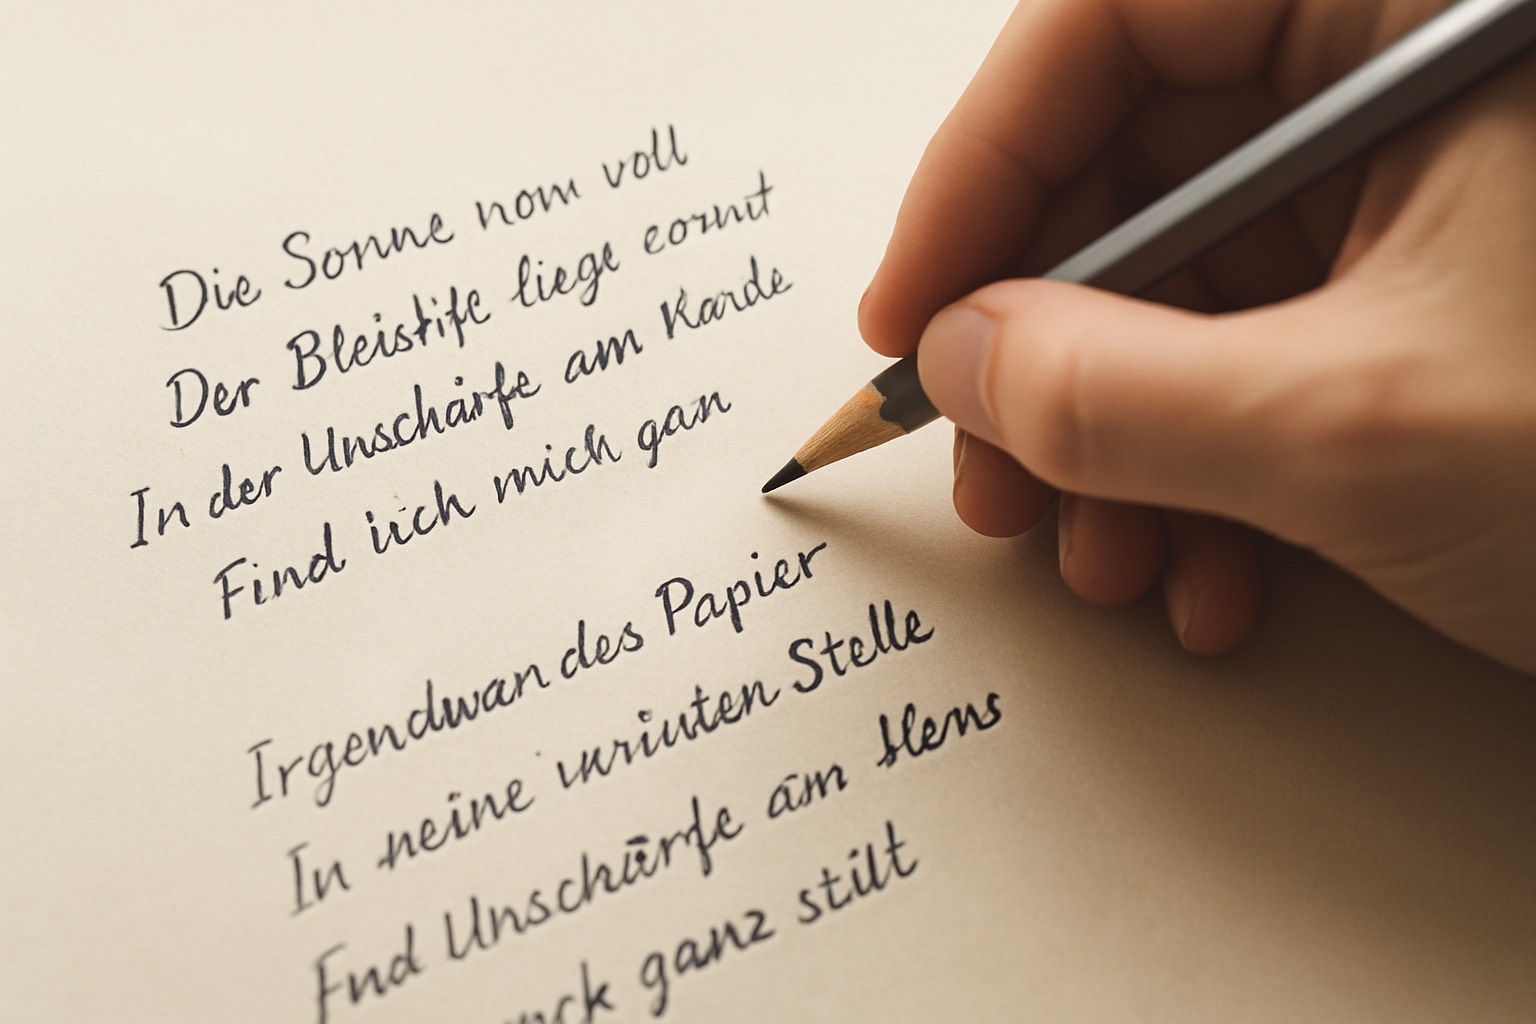 Die Sonne nom voll
Der Bleistifc liege eornit
In der Unschärfe am Karde
Find iich mich gan
Irgendwan des Papier
In neine Stelle
Fnd Unschürfe am
ganz stilt